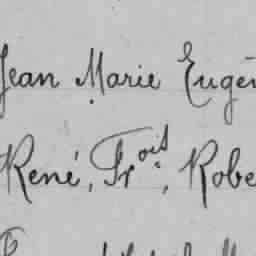 Jean Marie Eugèn
René, Frois, Robe